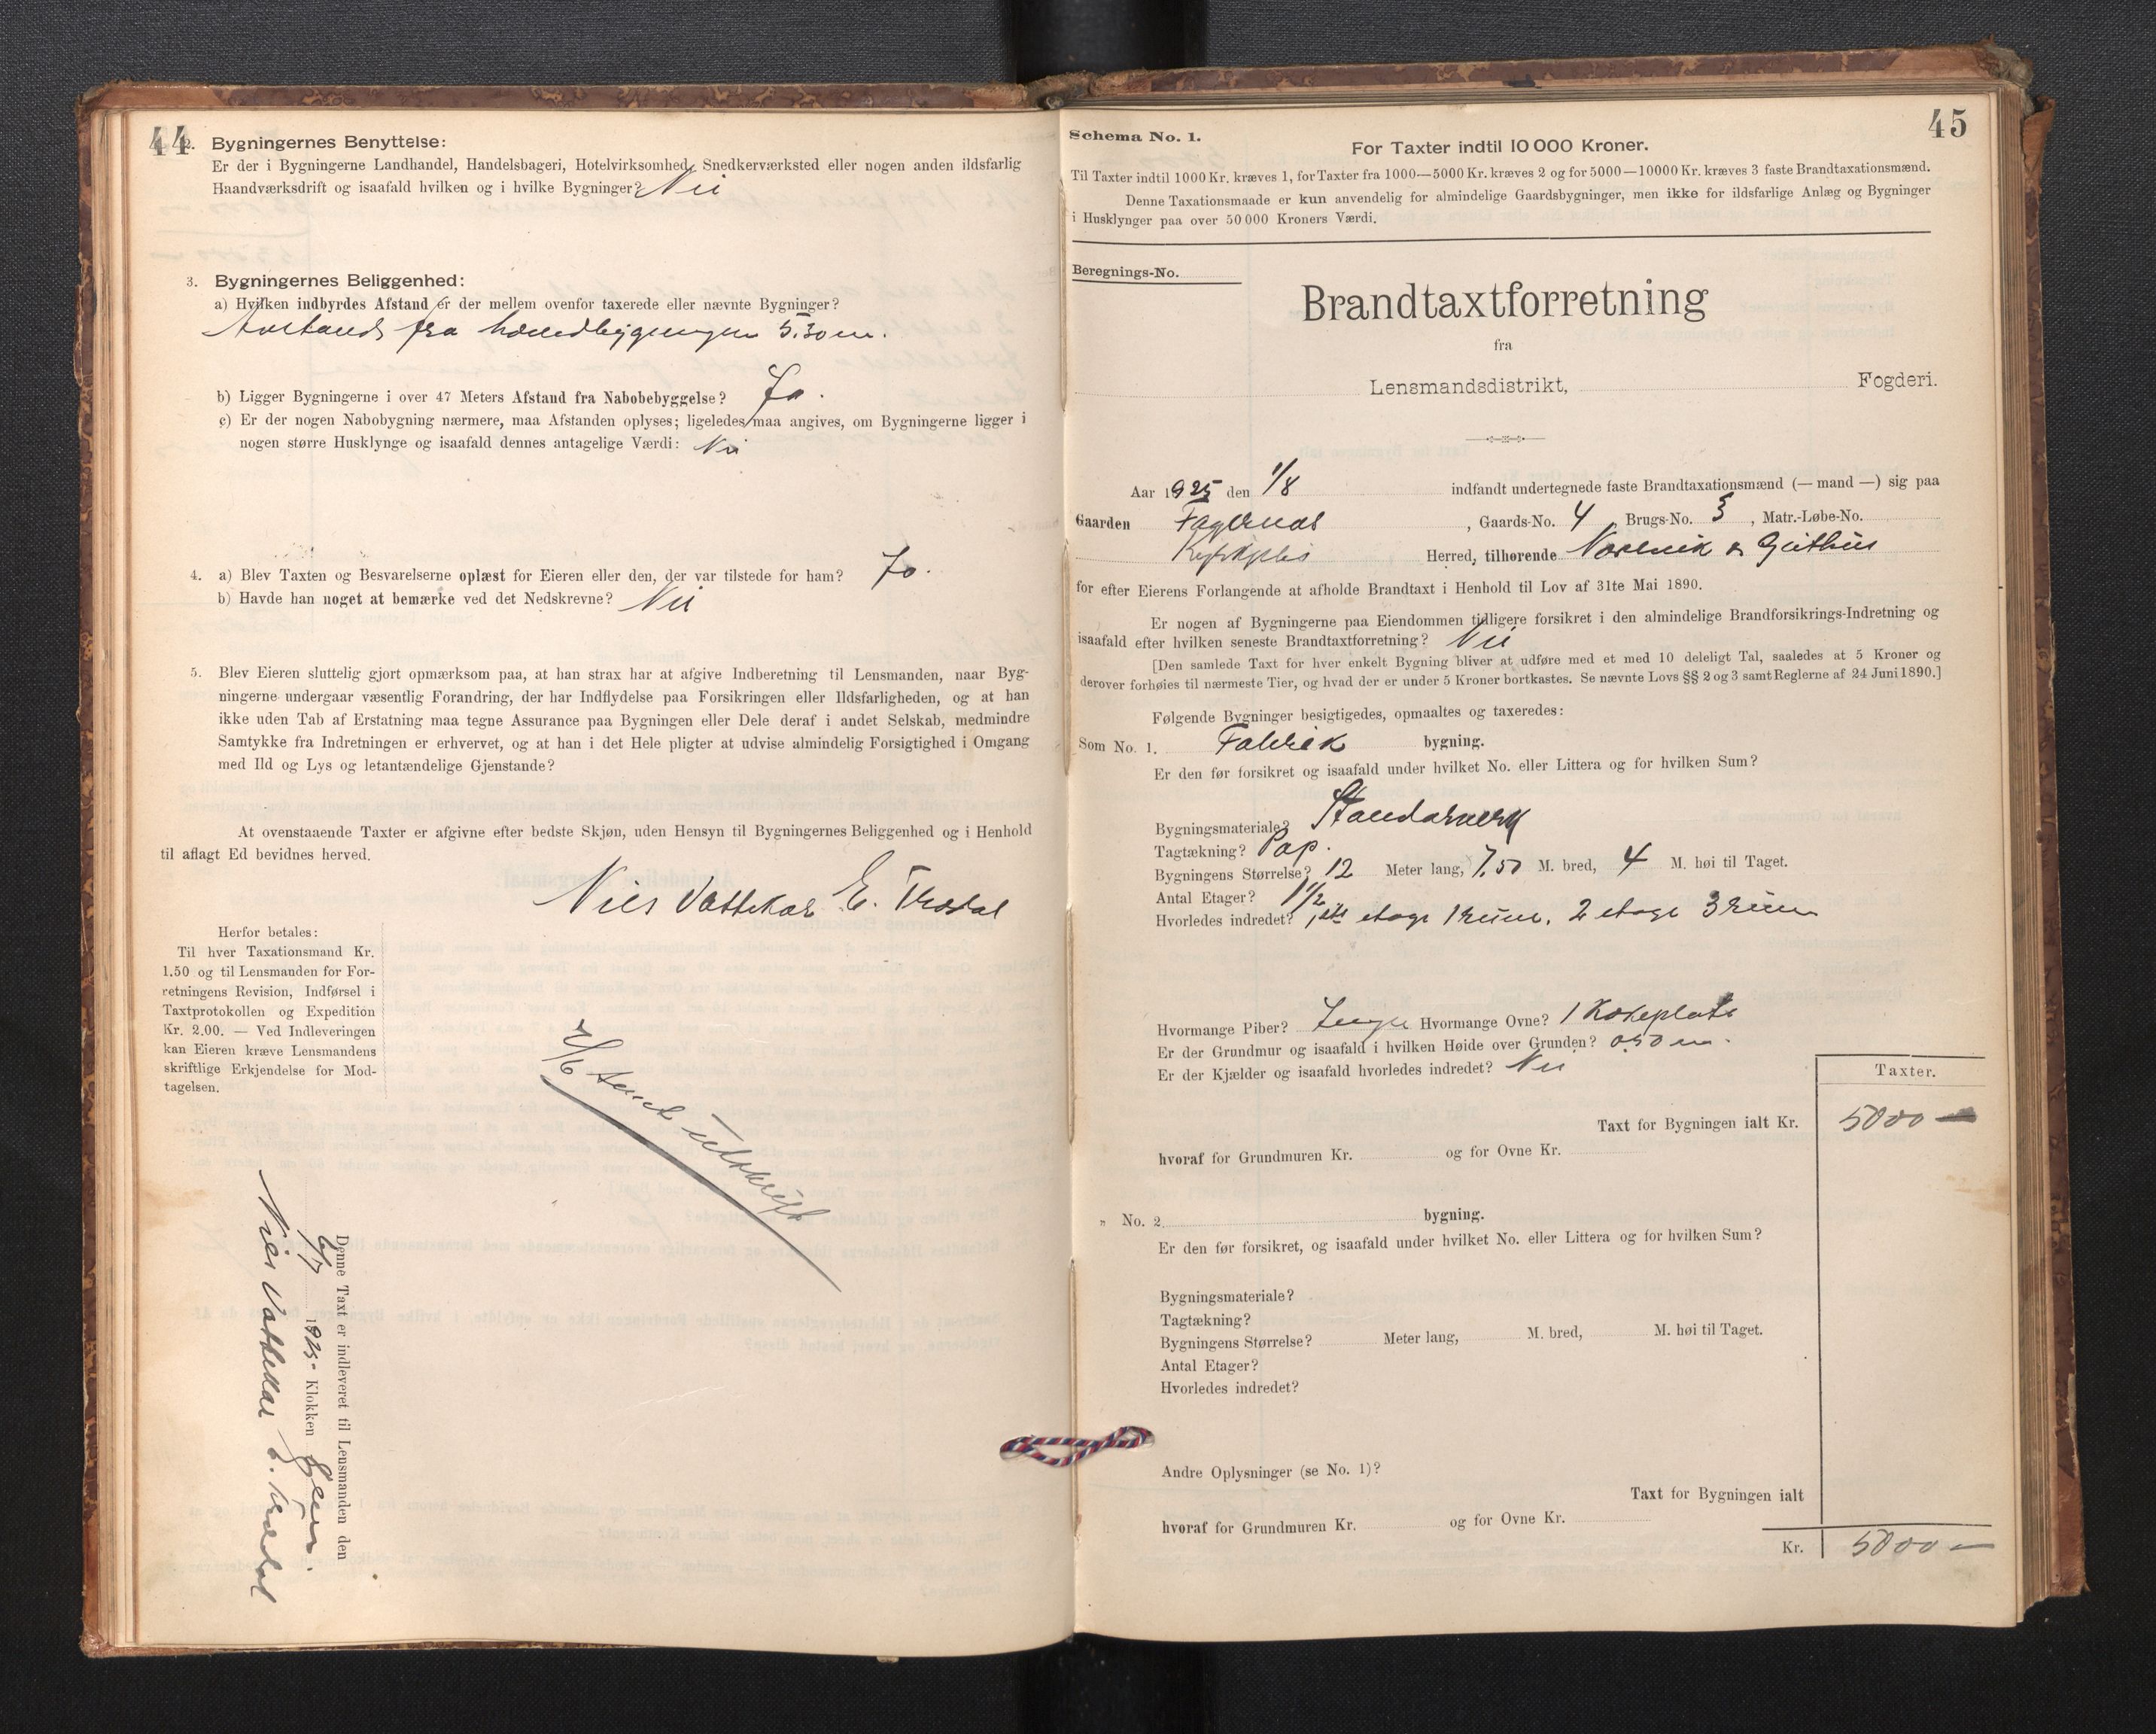 44
2. Bygningernes Benyttelse:
Er der i Bygningerne Landhandel, Handelsbageri, Hotelvirksomhed, Snedkerværksted eller nogen anden ildsfarlig
Haandværksdrift og isaafald hvilken og i hvilke Bygninger? Nei
3. Bygningernes Beliggenhed:
a) Hvilken indbyrdes Afstand er der mellem ovenfor taxerede eller nævnte Bygninger?
fra 5.30 m.
b) Ligger Bygningerne i over 47 Meters Afstand fra Nabobebyggelse? Ja.
c) Er der nogen Nabobygning nærmere, maa Afstanden oplyses; ligeledes maa angives, om Bygningerne ligger i
nogen større Husklynge og isaafald dennes antagelige Værdi: Nei
4. a) Blev Taxten og Besvarelserne oplæst for Eieren eller den, der var tilstede for ham? Ja.
b) Havde han noget at bemærke ved det Nedskrevne? Nei
5. Blev Eieren sluttelig gjort opmærksom paa, at han strax har at afgive Indberetning til Lensmanden, naar Byg-
ningerne undergaar væsentlig Forandring, der har Indflydelse paa Forsikringen eller Ildsfarligheden, og at han
ikke uden Tab af Erstatning maa tegne Assurance paa Bygningen eller Dele deraf i andet Selskab, medmindre
Samtykke fra Indretningen er erhvervet, og at han i det Hele pligter at udvise almindelig Forsigtighed i Omgang
med Ild og Lys og letantændelige Gjenstande?
At ovenstaaende Taxter er afgivne efter bedste Skjøn, uden Hensyn til Bygningernes Beliggenhed og i Henhold
til aflagt Ed bevidnes herved.
Nils Vattekar E. Trædal
Herfor betales:
Til hver Taxationsmand Kr.
1.50 og til Lensmanden for For-
retningens Revision, Indførsel i
Taxtprotokollen og Expedition
Kr. 2.00. — Ved Indleveringen
kan Eieren kræve Lensmandens
skriftlige Erkjendelse for Mod-
tagelsen.
sendt utskrift
Denne Taxt er indleveret til Lensmanden den
1925 Klokken
Nils Vattekar E. Trædal
45
Schema No. 1.
For Taxter indtil 10 000 Kroner.
Til Taxter indtil 1000 Kr. kræves 1, for Taxter fra 1000—5000 Kr. kræves 2 og for 5000—10000 Kr. kræves 3 faste Brandtaxationsmænd.
Denne Taxationsmaade er kun anvendelig for almindelige Gaardsbygninger, men ikke for ildsfarlige Anlæg og Bygninger
i Husklynger paa over 50 000 Kroners Værdi.
Beregnings-No.
Brandtaxtforretning
fra
Lensmandsdistrikt, Fogderi.
Aar 1925 den 1/8 indfandt undertegnede faste Brandtaxationsmænd (— mand —) sig paa
Gaarden Fagernes, Gaards-No. 4 Brugs-No. 3, Matr.-Løbe-No.
Herred, tilhørende
for efter Eierens Forlangende at afholde Brandtaxt i Henhold til Lov af 31te Mai 1890.
Er nogen af Bygningerne paa Eiendommen tidligere forsikret i den almindelige Brandforsikrings-Indretning og
isaafald efter hvilken seneste Brandtaxtforretning? Nei
[Den samlede Taxt for hver enkelt Bygning bliver at udføre med et med 10 deleligt Tal, saaledes at 5 Kroner og
derover forhøies til nærmeste Tier, og hvad der er under 5 Kroner bortkastes. Se nævnte Lovs §§ 2 og 3 samt Reglerne af 24 Juni 1890.]
Følgende Bygninger besigtigedes, opmaaltes og taxeredes:
Som No. 1. Fabrik bygning.
Er den før forsikret og isaafald under hvilket No. eller Littera og for hvilken Sum?
Bygningsmateriale? Standarverk
Tagtækning? Pap.
Bygningens Størrelse? 12 Meter lang, 7,50 M. bred, 4 M. høi til Taget.
Antal Etager? 1 1/2
Hvorledes indredet? 1ste etage 1 rum, 2 etage 3 rum
Hvormange Piber? Ingen Hvormange Ovne? 1 Kokeplate
Er der Grundmur og isaafald i hvilken Høide over Grunden? 0,50 m.
Er der Kjælder og isaafald hvorledes indredet? Nei
Taxter.
Taxt for Bygningen ialt Kr. 5000 —
hvoraf for Grundmuren Kr. og for Ovne Kr.
„ No. 2. bygning.
Er den før forsikret, og isaafald under hvilket No. eller Littera og for hvilken Sum?
Bygningsmateriale?
Tagtækning?
Bygningens Størrelse? Meter lang, M. bred, M. høi til Taget.
Antal Etager?
Hvorledes indredet?
Andre Oplysninger (se No. 1)?
Taxt for Bygningen ialt
hvoraf for Grundmuren Kr. og for Ovne Kr.
Kr. 5000 —